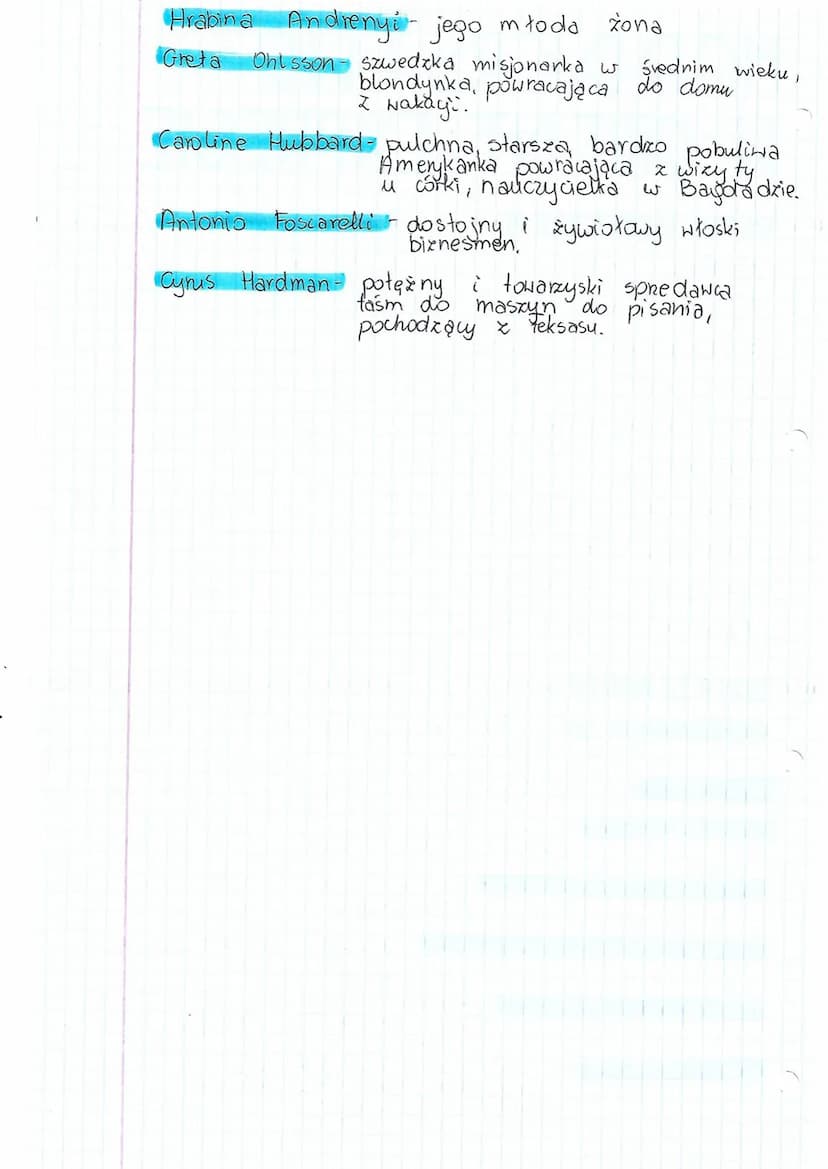 Hrabina Andrenyi - jego młoda żona
Greta Ohlsson - szwedzka misjonarka w średnim wieku,
blondynka, powracająca do domu
z wakacji.
Caroline Hubbard - pulchna, starsza, bardzo pobuliwa
Amerykanka powracająca z wizyty
u córki, nauczycielka w Bagdadzie.
Antonio Foscarelli - dostojny i żywiołowy włoski
biznesmen.
Cyrus Hardman - potężny i towarzyski spredawca
taśm do maszyn do pisania,
pochodzący z Teksasu.